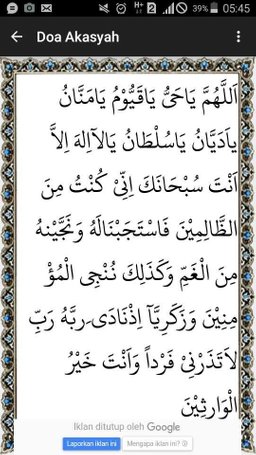 39% 05:45
Doa Akasyah
اَللَّهُمَّ يَاحَىُّ يَاقَيُّوْمُ يَامَنَّانُ
يـاَدَيَّانُ يَاسُلْطَانُ يَالآاِلٰهَ اِلاَّ
اَنْتَ سُبْحَانَكَ اِنِّىْ كُنْتُ مِنَ
الظَّالِمِيْنَ فَاسْتَجَبْنَالَهُ وَنَجَّيْنٰهُ
مِنَ الْغَمِّ وَكَذٰلِكَ نُنْجِى الْمُؤْ
مِنِيْنَ وَزَكَرِيَّآ اِذْنَادَى رَبَّهُ رَبِّ
لاَتَذَرْنِىْ فَرْداً وَاَنْتَ خَيْرُ
الْوَارِثِيْنَ
Iklan ditutup oleh Google
Laporkan iklan ini
Mengapa iklan ini?